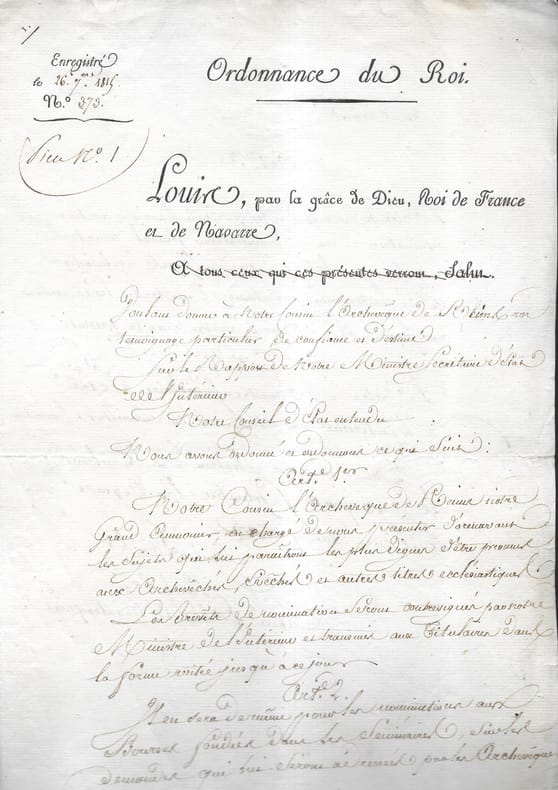 Enregistré
le 26. 7bre 1815.
N.o 373.
Ordonnance du Roi.
Pièce No. 1
Louis, par la grâce de Dieu, Roi de France
et de Navarre,
A tous ceux qui ces présentes verront, Salut.
Voulant donner à Notre Cousin l'Archevêque de Reims un
témoignage particulier de confiance et d'estime
Sur le Rapport de Notre Ministre Secrétaire d'État
de l'Intérieur
Notre Conseil d'État entendu
Nous avons ordonné et ordonnons ce qui suit :
Art.e 1er
Notre Cousin l'Archevêque de Reims notre
Grand Aumonier, est chargé de nous présenter dorénavant
les sujets qui lui paraîtront les plus dignes d'être promus
aux Archevêchés, Evêchés et autres titres ecclésiastiques
Les brevets de nomination seront contresignés par notre
Ministre de l'Intérieur et transmis aux Titulaires dans
la forme usitée jusqu'à ce jour
Art.e 2.
Il en sera de même pour les nominations aux
Bourses fondées dans les Séminaires, sur les
demandes qui lui seront adressées par les Archevêques